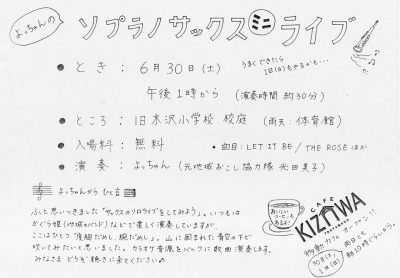 よっちゃんの
ソプラノサックスミニライブ
● とき： 6月30日(土)
うまくできたら
1日(日)もやるかも…
午後1時から (演奏時間 約30分)
● ところ： 旧本沢小学校 校庭 (雨天：体育館)
● 入場料： 無料
● 曲目：LET IT BE / THE ROSE ほか
● 演奏： よっちゃん (元地域おこし協力隊 光田美子)
よっちゃんから ひと言
ふと思いつきました「サックスのソロライブをしてみよう」。いつもは
かぐら姫(地域のバンド)などで楽しく演奏していますが、
ここはひとつ「度胸だめし、腕だめし」。山に囲まれた青空の下で
吹いてみたいと思いました。カラオケ音源をバックに数曲演奏します。
みなさま どうぞ聴きに来てください♪
おいしい
コーヒーも
あるよ!
COFFEE
KIZAWA
移動カフェ オープン!!
両日とも
朝10時ぐらいから。
30(土)
1(日)